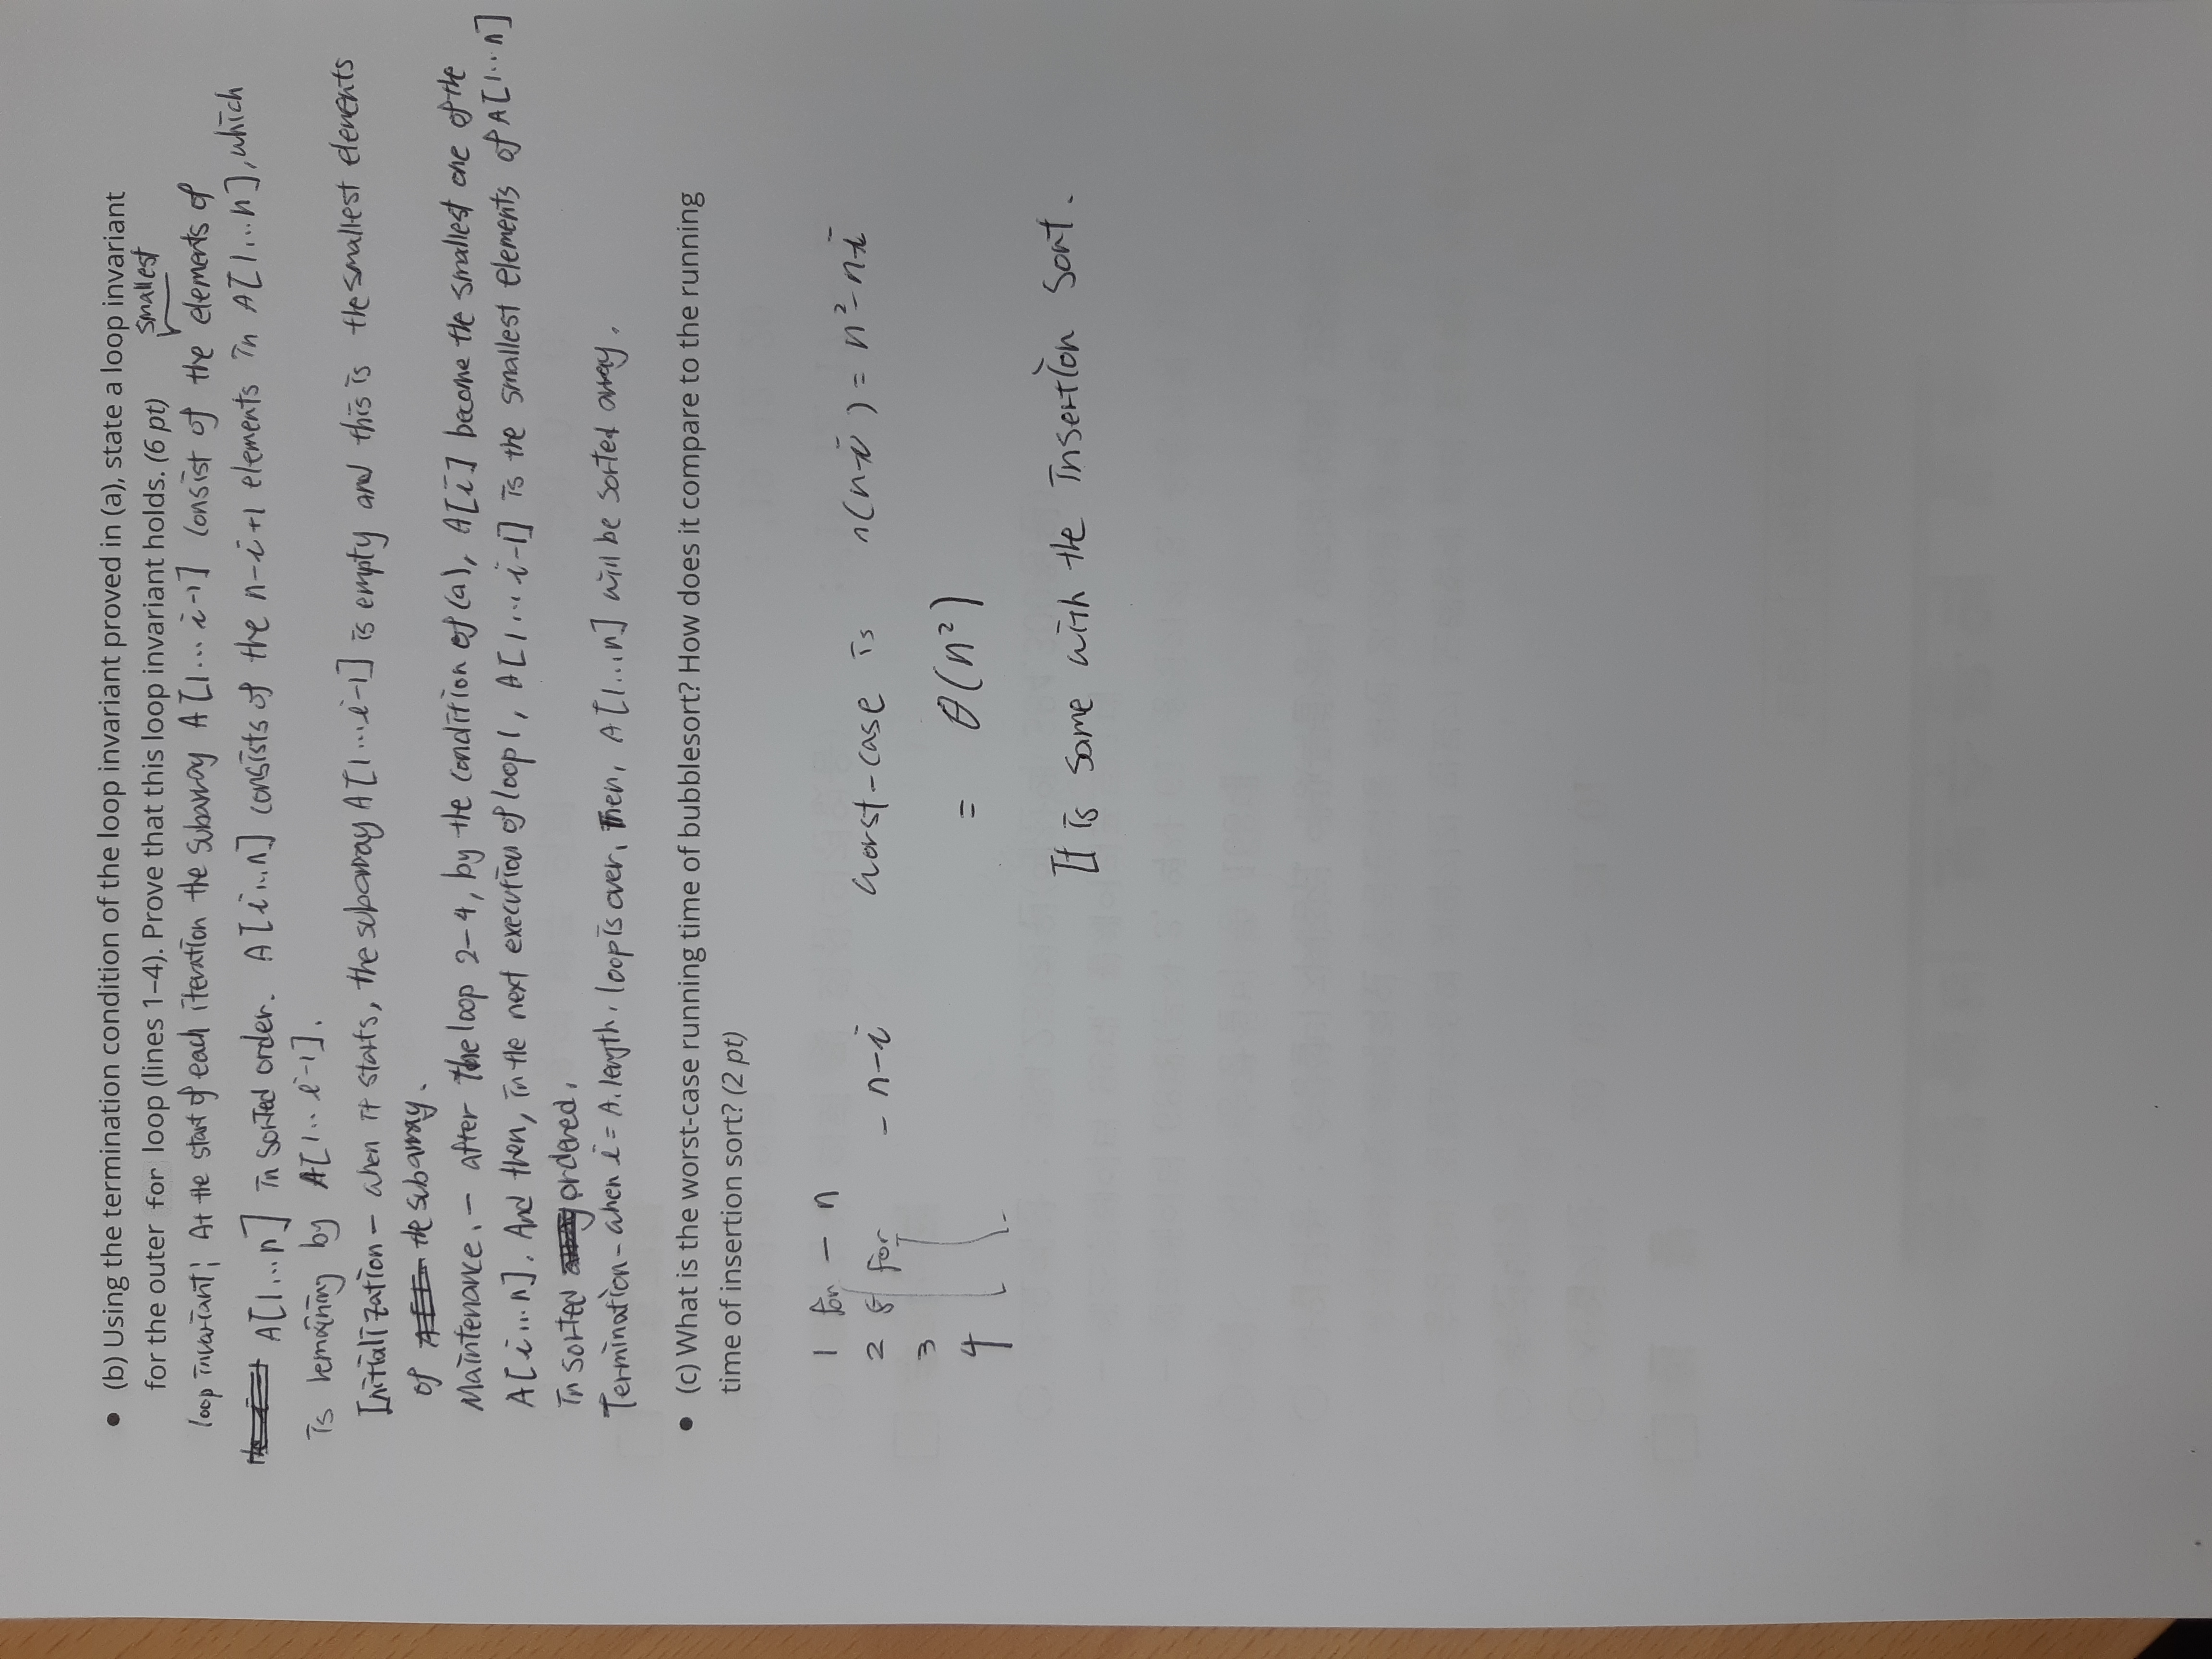 • (b) Using the termination condition of the loop invariant proved in (a), state a loop invariant
for the outer for loop (lines 1–4). Prove that this loop invariant holds. (6 pt)
smallest
loop invariant; At the start of each iteration the subarray A[1... i-1] consist of the elements of
A[1...n] in sorted order. A[i...n] consists of the n-i+1 elements in A[1...n], which
is remaining by A[1.. i-1].
Initialization - when it starts, the subarray A[1...i-1] is empty and this is the smallest elements
of the subarray.
Maintenance. - after the loop 2-4, by the condition of (a), A[i] become the smallest one of the
A[i...n]. And then, in the next execution of loop 1, A[1...i-1] is the smallest elements of A[1...n]
in sorted ordered.
Termination - when i = A.length, loop is over, Then, A[1...n] will be sorted array.
• (c) What is the worst-case running time of bubblesort? How does it compare to the running
time of insertion sort? (2 pt)
1 for - n
2 for - n-i worst-case is n(n-i) = n²-ni
3
4 = θ(n²)
It is same with the insertion sort.